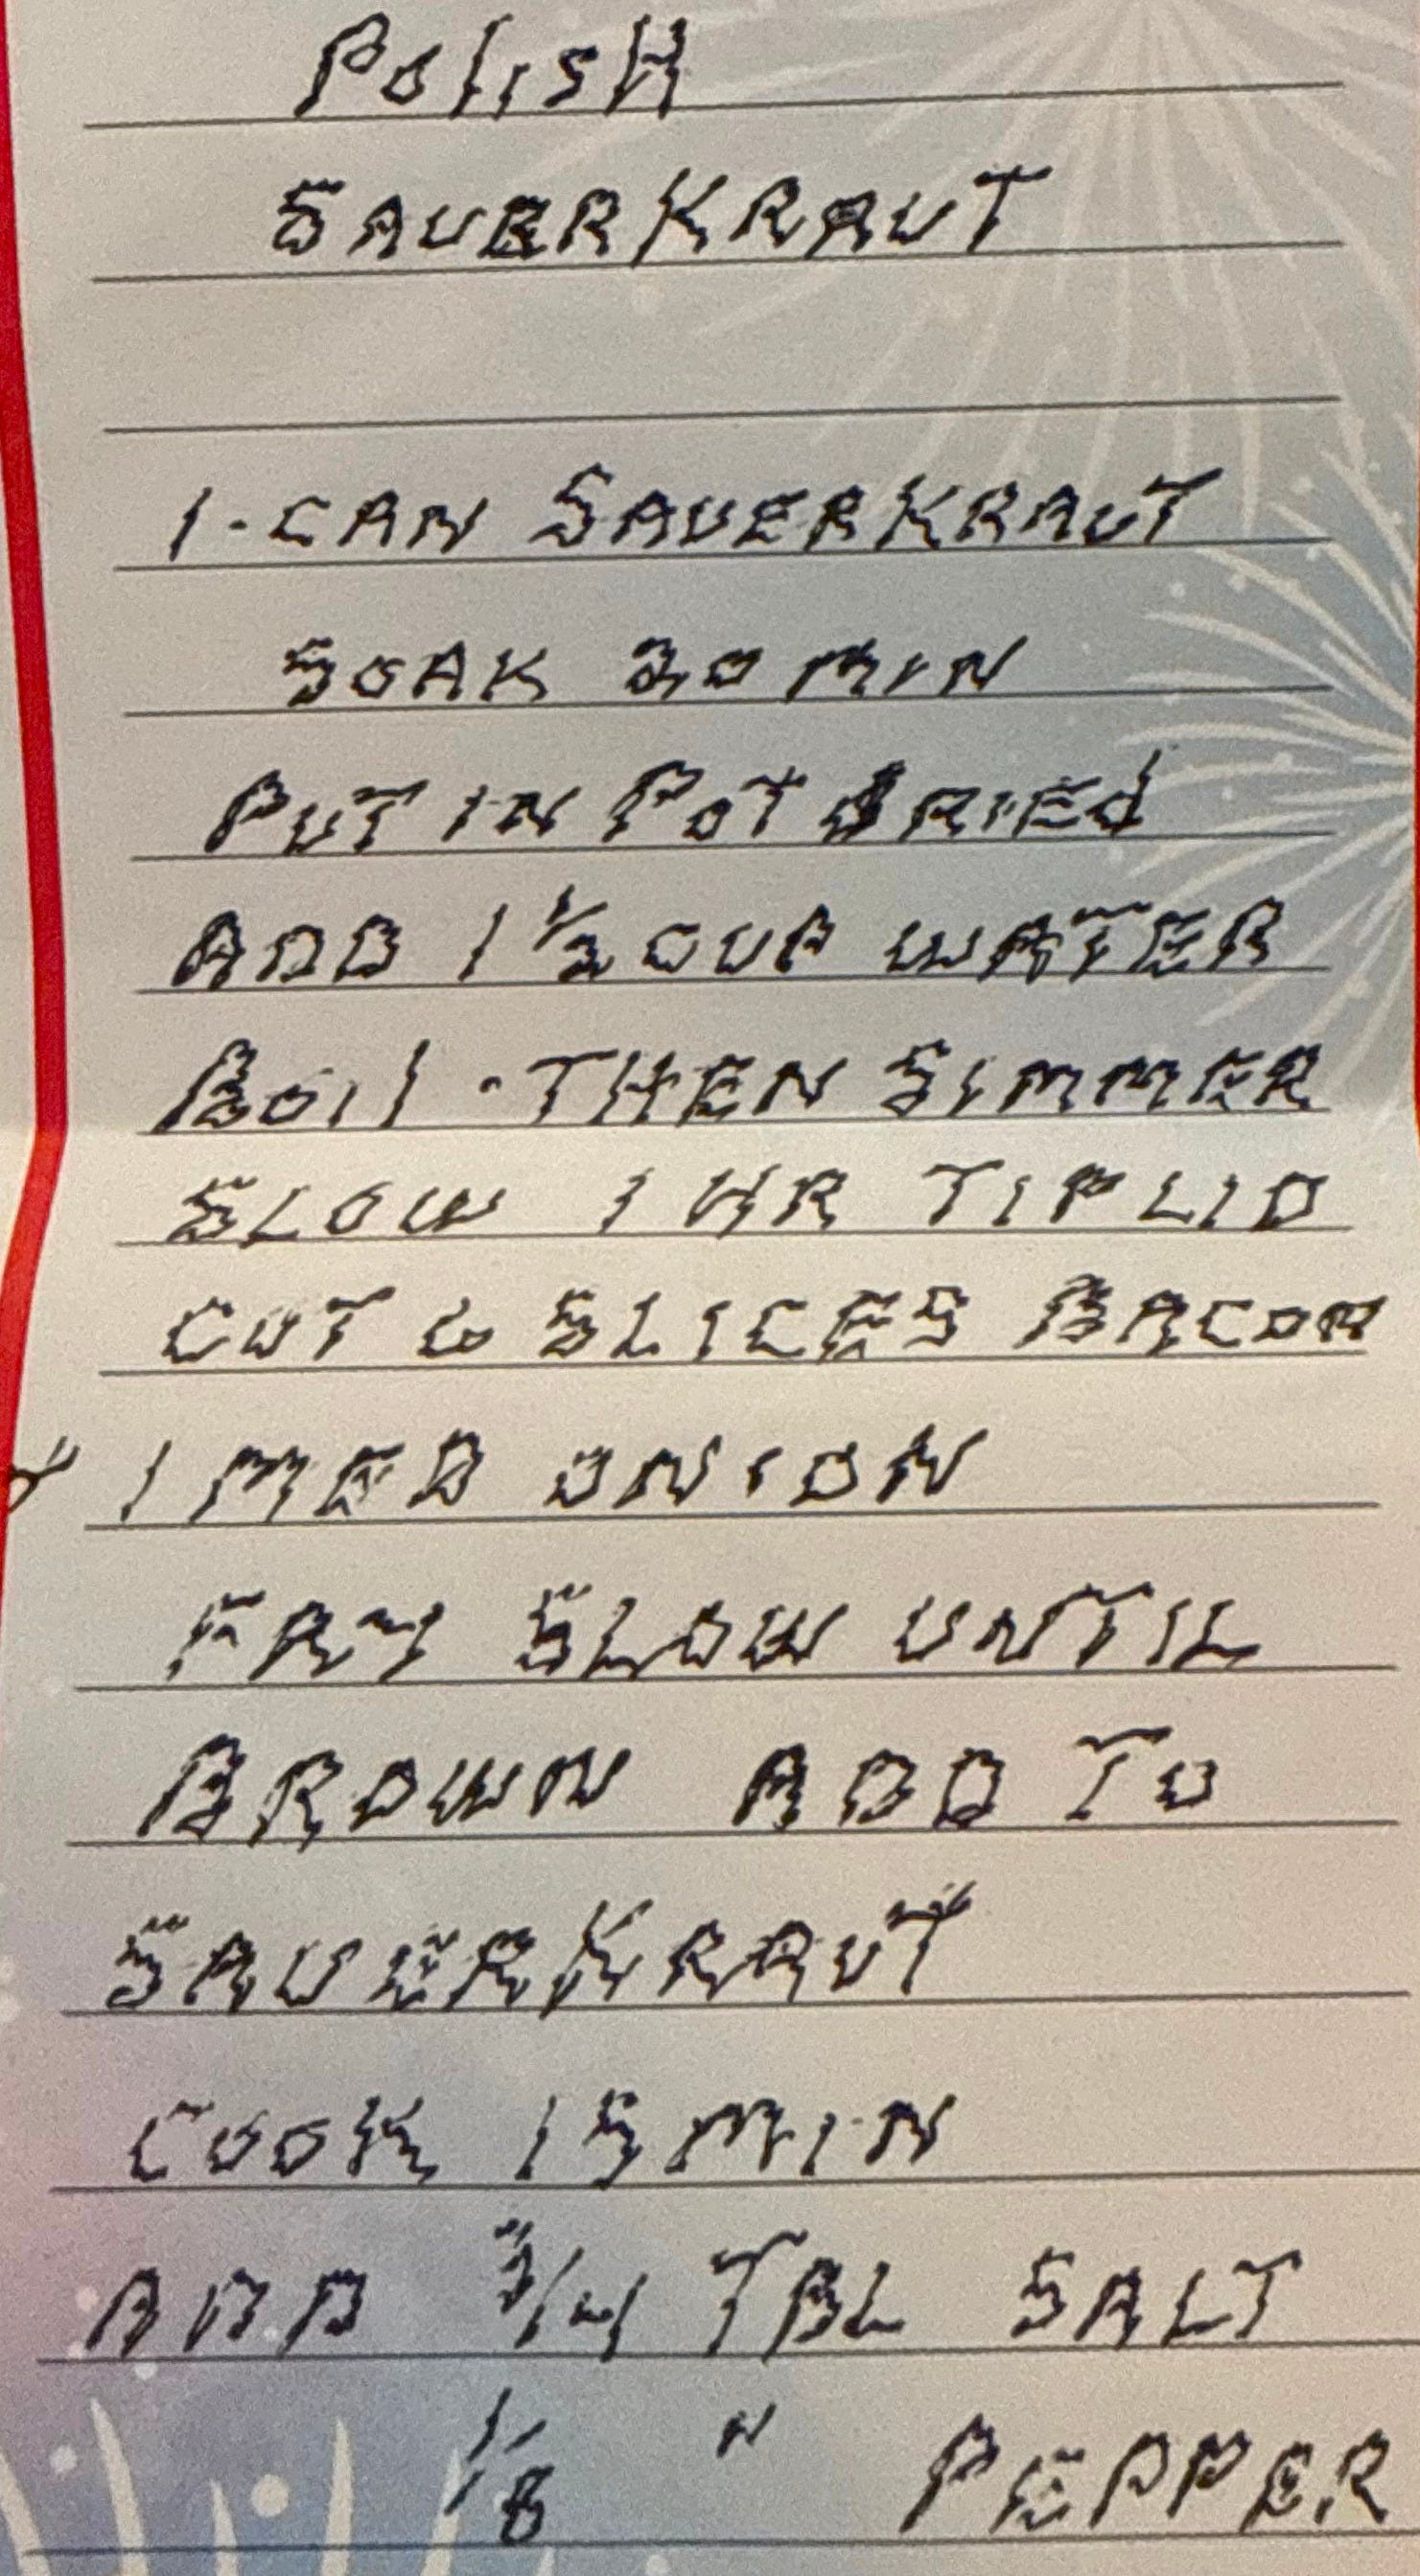 Polish
SAUERKRAUT
1-CAN SAUERKRAUT
SOAK 20 MIN
PUT IN POT dRIEd
ADD 1 1/2 CUP WATER
Boil - THEN SIMMER
SLOW 1 HR TIP LID
CUT 6 SLICES BACON
& 1 MED ONION
FRY SLOW UNTIL
BROWN ADD TO
SAUERKRAUT
COOK 15 MIN
ADD 3/4 TBL SALT
1/8 " PEPPER